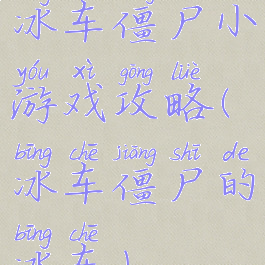 冰车僵尸小
yóu xì gōng lüè
游戏攻略(
bīng chē jiāng shī de
冰车僵尸的
bīng chē
冰车)